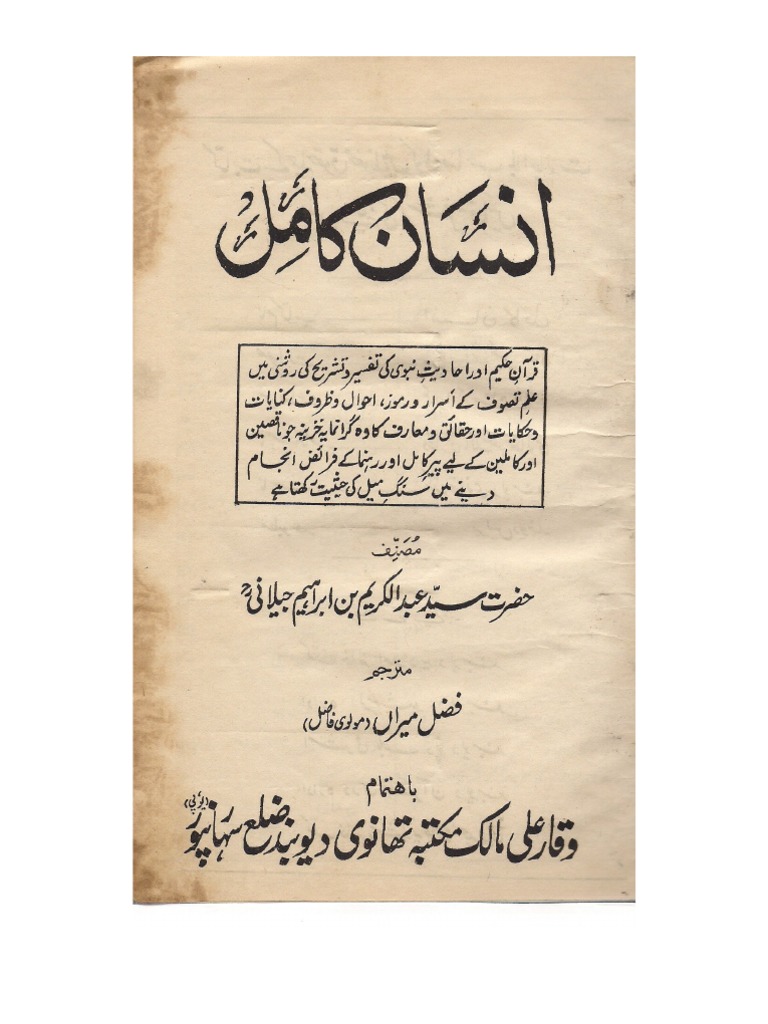 انسان کامل
قرآن حکیم اور احادیثِ نبوی کی تفسیر و تشریح کی روشنی میں
علمِ تصوف کے اسرار و رموز، احوال و ظروف، کنایات
و حکایات اور حقائق و معارف کا وہ گرانمایہ خزینہ جو ناقصین
اور کاملین کے لیے پیرِ کامل اور رہنما کے فرائض انجام
دینے میں سنگِ میل کی حیثیت رکھتا ہے
مُصنّف
حضرت سیّد عبد الکریم بن ابراہیم جیلانیؒ
مترجم
فضل میراں (مولوی فاضل)
باہتمام
وقار علی مالک مکتبہ تھانوی دیوبند ضلع سہارنپور (یوپی)